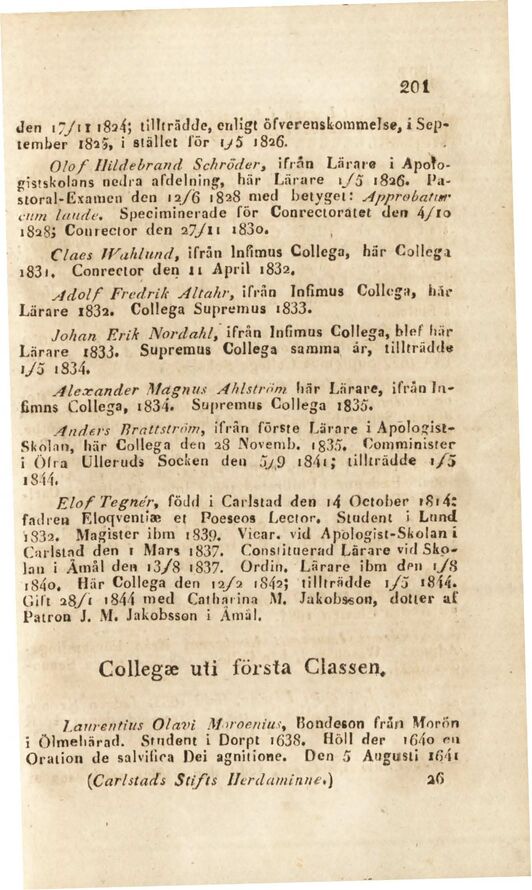 201
den 17/11 1824; tillträdde, enligt öfverenskommelse, i Sep-
tember 1825, i stället för 1/5 1826.
Olof Hildebrand Schröder, ifrån Lärare i Apolo-
gistskolans nedra afdelning, här Lärare 1/5 1826. Pa-
storal-Examen den 12/6 1828 med betyget: Approbatur
cum laude. Speciminerade för Conrectoratet den 4/10
1828; Conrector den 27/11 1830.
Claes Wahlund, ifrån Infimus Collega, här Collega
1831. Conrector den 11 April 1832.
Adolf Fredrik Altahr, ifrån Infimus Collega, här
Lärare 1832. Collega Supremus 1833.
Johan Erik Nordahl, ifrån Infimus Collega, blef här
Lärare 1833. Supremus Collega samma år, tillträdde
1/5 1834.
Alexander Magnus Ahlström här Lärare, ifrån In-
fimns Collega, 1834. Supremus Collega 1835.
Anders Brattström, ifrån förste Lärare i Apologist-
Skolan, här Collega den 28 Novemb. 1835. Comminister
i Öfra Ulleruds Socken den 5/9 1841; tillträdde 1/5
1844.
Elof Tegnér, född i Carlstad den 14 October 1814:
fadren Eloqventiæ et Poeseos Lector. Student i Lund
1832. Magister ibm 1839. Vicar. vid Apologist-Skolan i
Carlstad den 1 Mars 1837. Constituerad Lärare vid Sko-
lan i Åmål den 13/8 1837. Ordin. Lärare ibm den 1/8
1840. Här Collega den 12/2 1842; tillträdde 1/5 1844.
Gift 28/1 1844 med Catharina M. Jakobsson, dotter af
Patron J. M. Jakobsson i Åmål.
Collegæ uti första Classen.
Laurentius Olavi Moroenius, Bondeson från Morön
i Ölmehärad. Student i Dorpt 1638. Höll der 1640 en
Oration de salvifica Dei agnitione. Den 5 Augusti 1641
(Carlstads Stifts Herdaminne.) 26